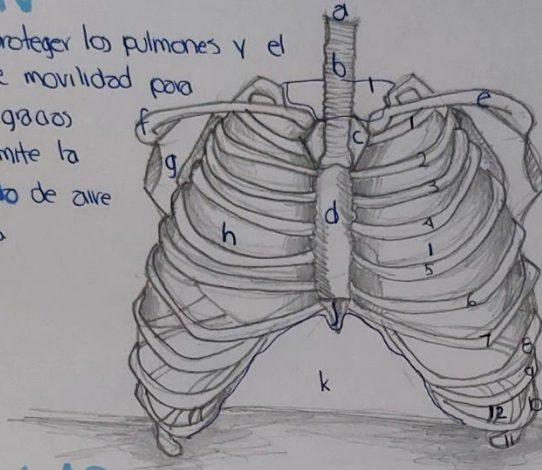 roteger los pulmones y el
e movilidad para
gracias
mite la
to de aire
a
b
1
f
e
c
1
g
2
3
d
h
4
1
5
6
J
7
8
9
k
10
12
11